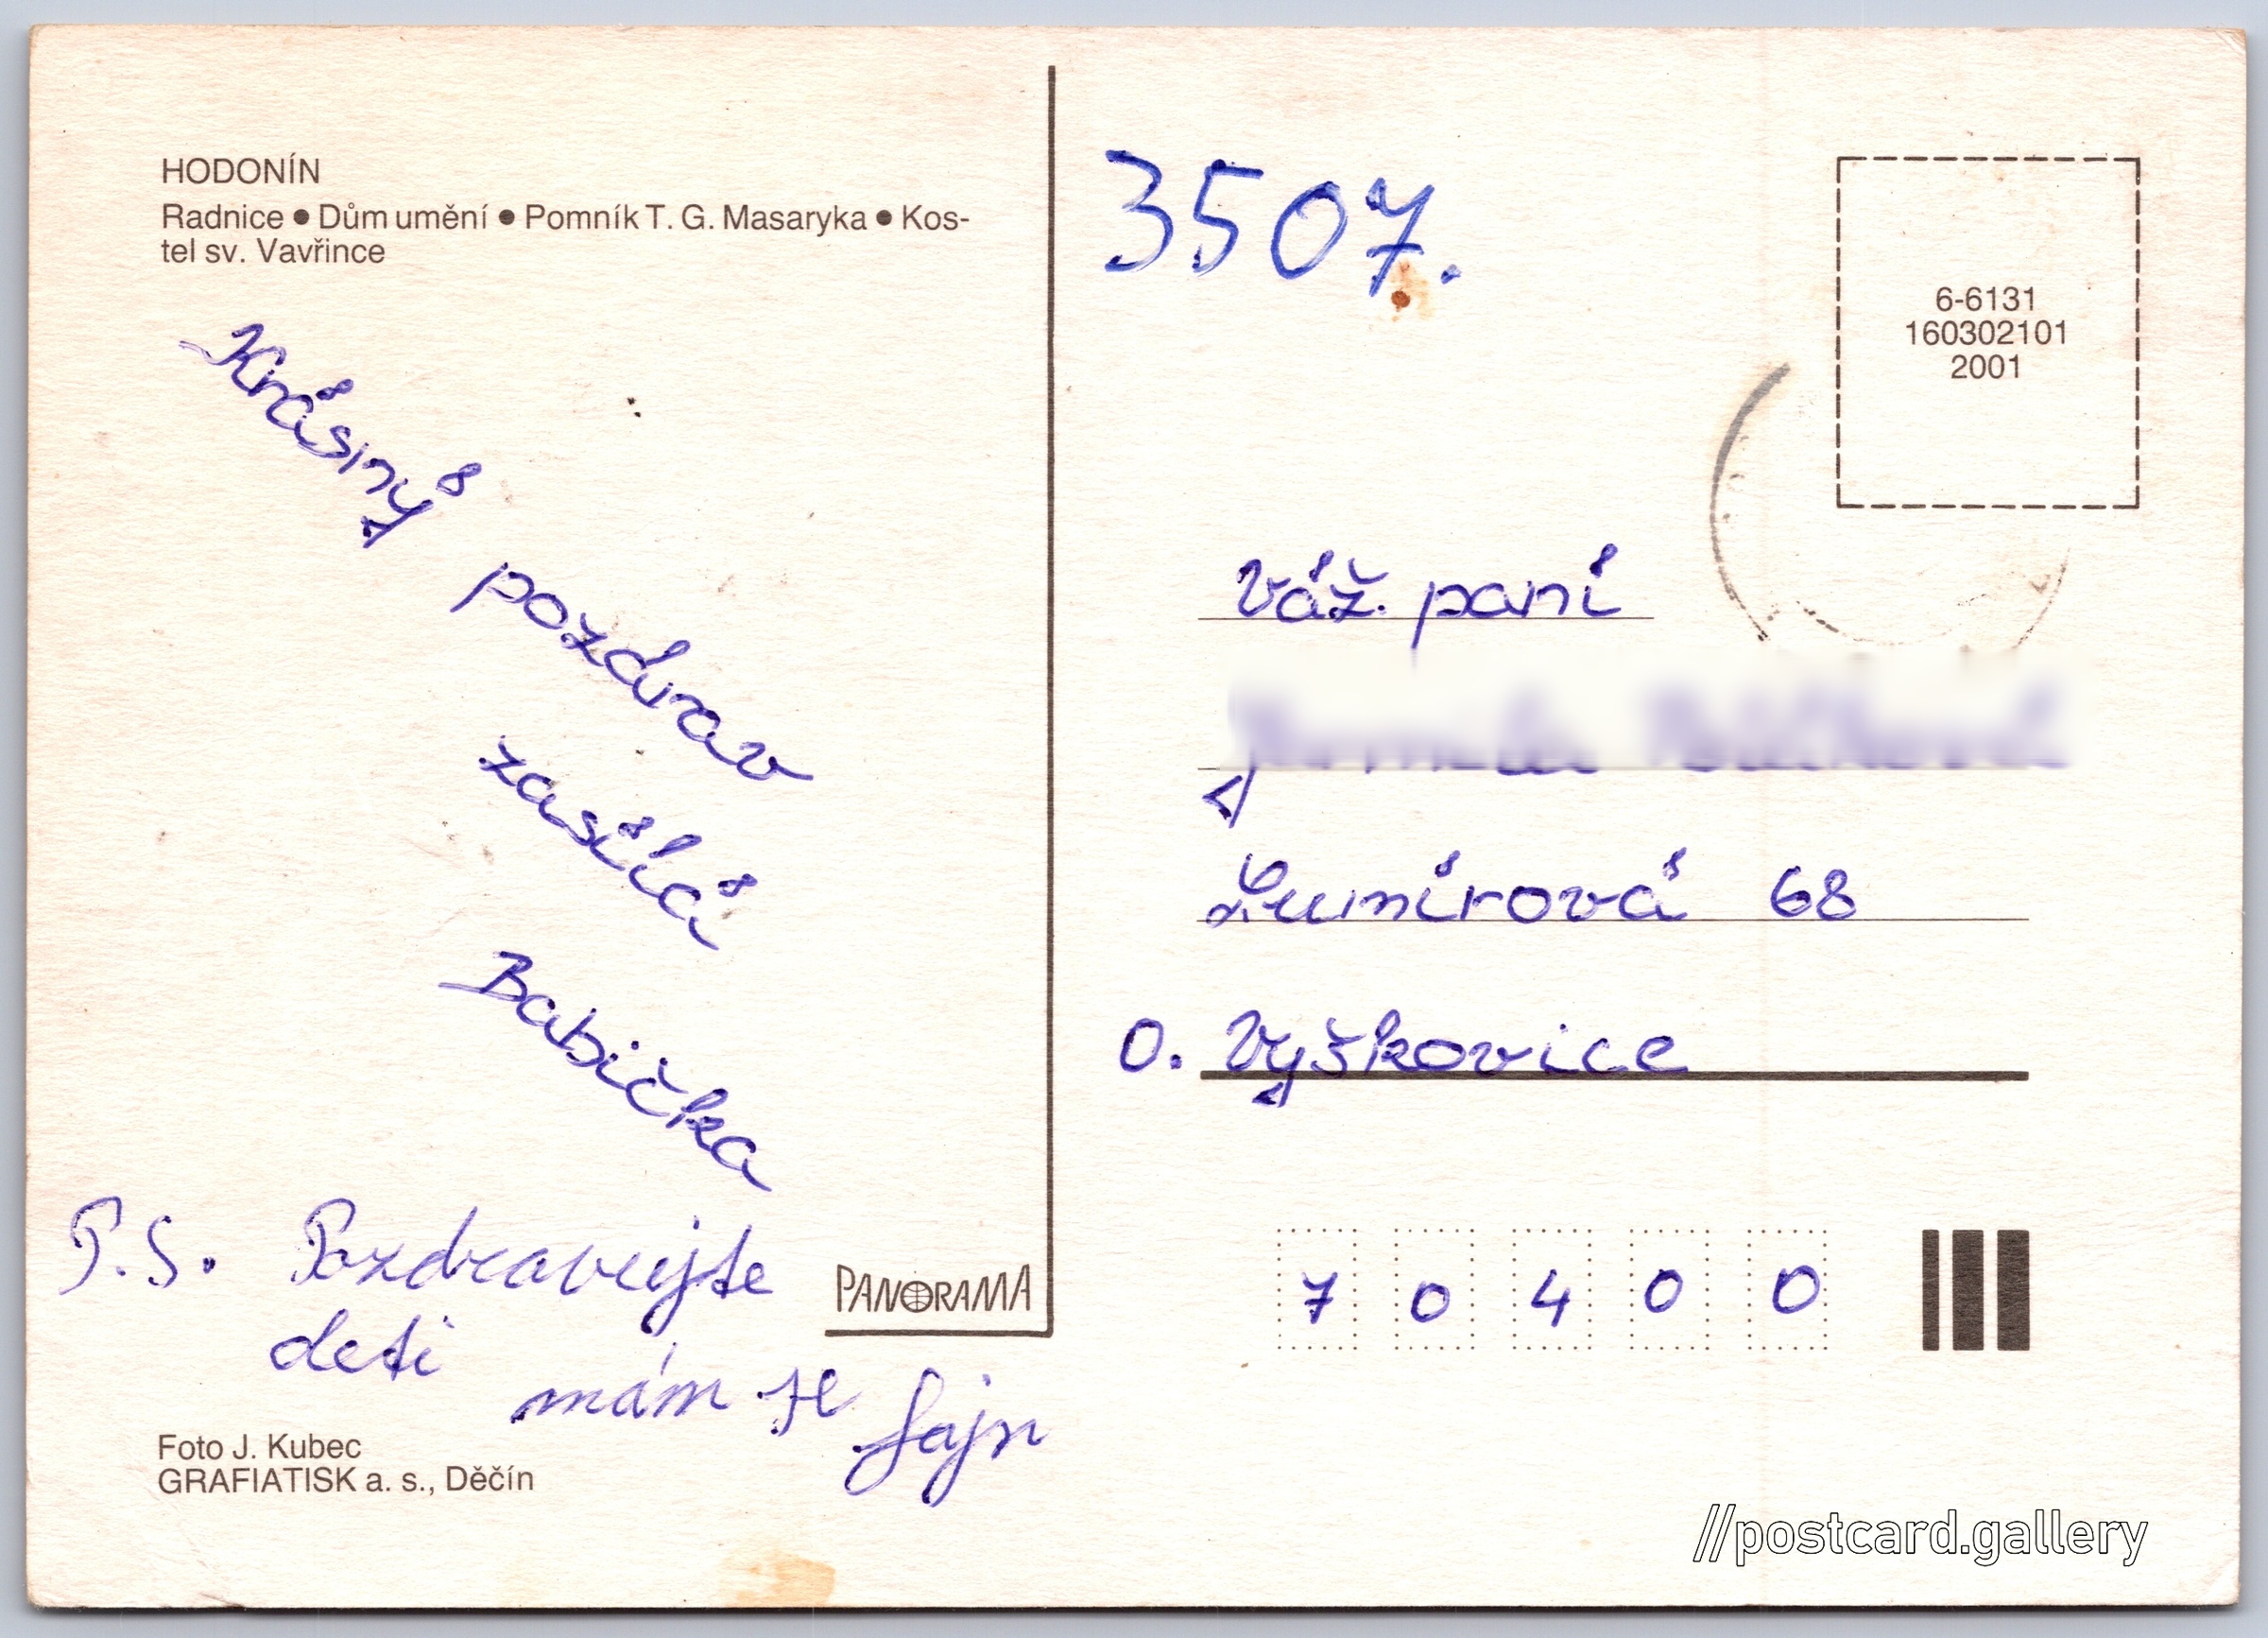 HODONÍN
Radnice ● Dům umění ● Pomník T. G. Masaryka ● Kos-
tel sv. Vavřince
Krásný
pozdrav
zasílá
Babička
P.S. Pozdravujte
deti
mám se fajn
PANORAMA
Foto J. Kubec
GRAFIATISK a. s., Děčín
3507.
6-6131
160302101
2001
Váž. paní
Lumírová 68
O. Vyškovice
70400
//postcard.gallery